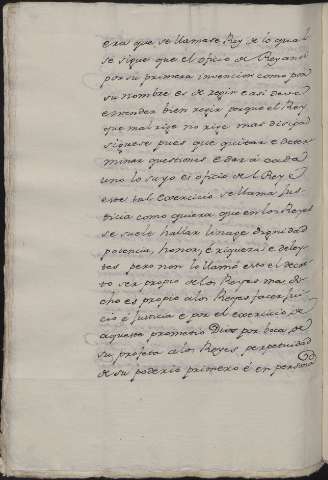 era que se llamase Rey de lo qual
se sigue que el oficio de Rey ansi
por su primera invencion como por
su nombre es de regir e asi deve
entender bien regir porque el Rey
que mal rije no rije mas disipa
siguese pues que quitar e deter
minar questiones e dar á cada
uno lo suyo es oficio de el Rey e
este tal exercicio se llama Jus
ticia como quiera que en los Reyes
se suele hallar linage dignidad
potencia, honor, é riquezas e deley
tes pero non lo llamó esto el decre
to ser propio de los Reyes ma di
cho es propio a los Reyes facer jui
cio é justicia e por el exercicio de
aquesta prometio Dios por boca de
su profeta a los Reyes perpetuidad
de su poderio primero é en persona